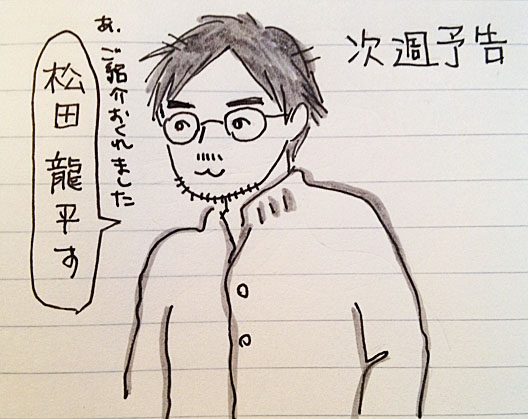 次週予告
あ、ご紹介おくれました
松田龍平す